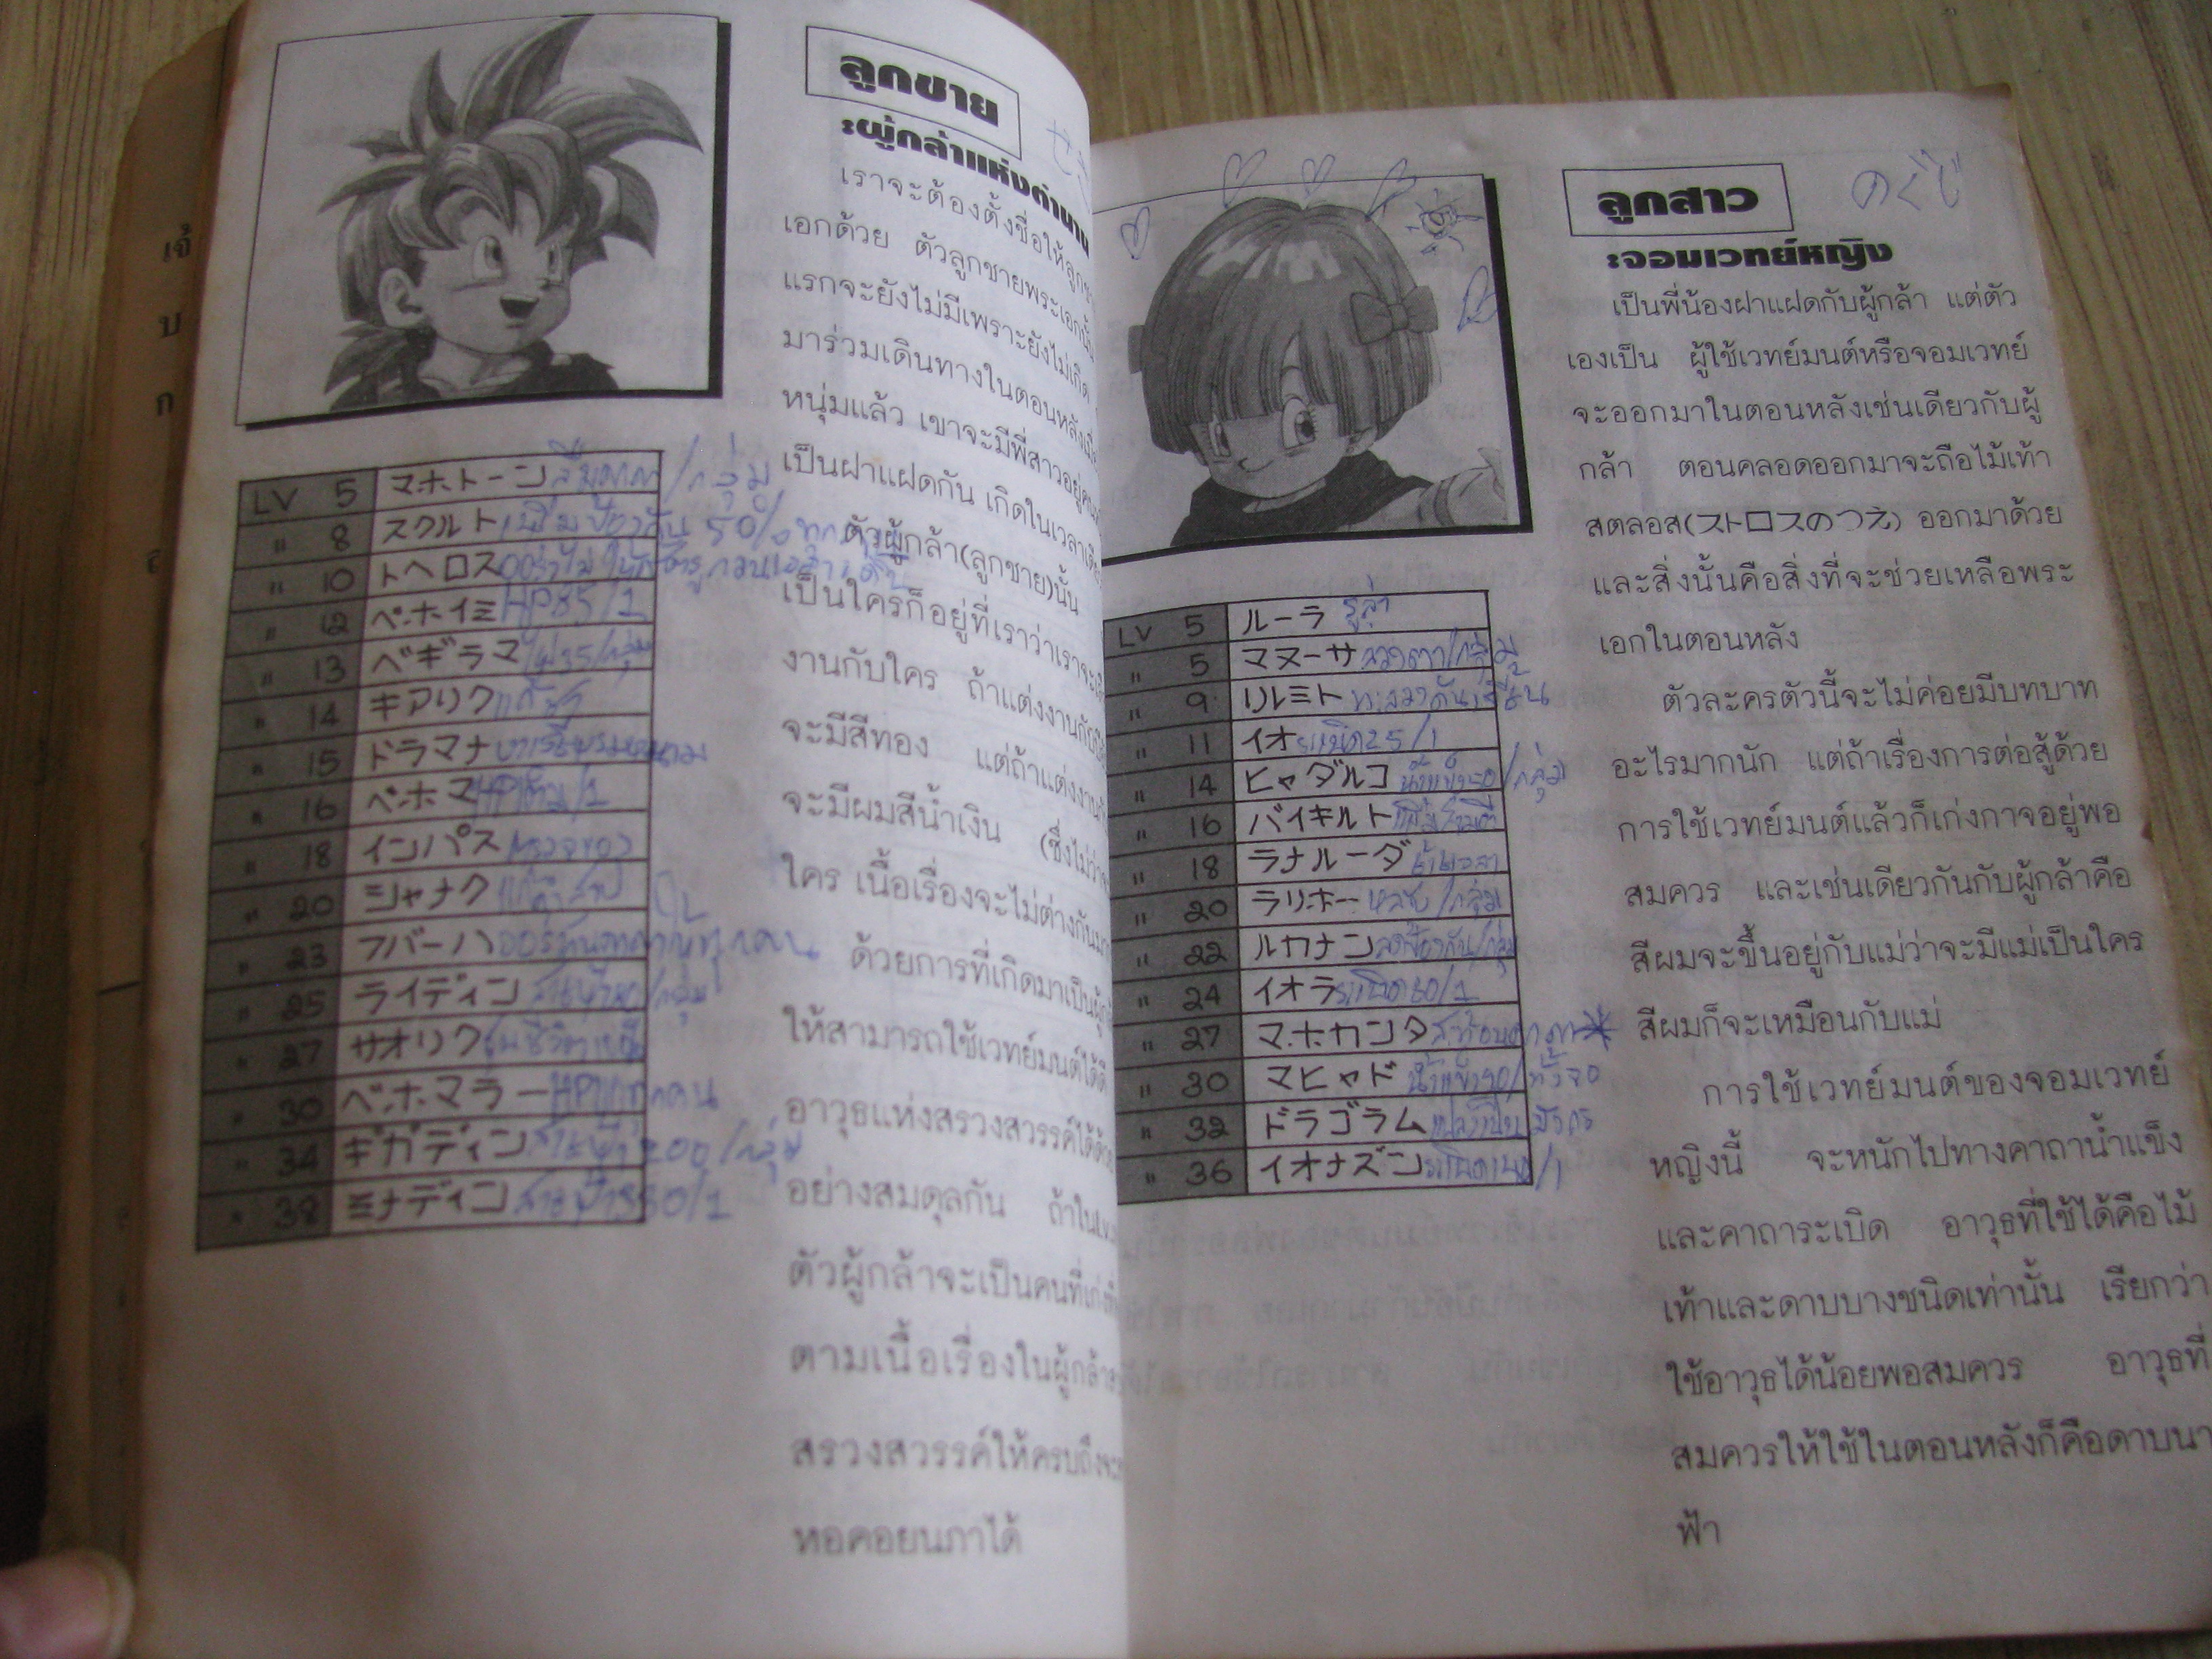 ลูกชาย
:ผู้กล้าแห่งตำนาน
เราจะต้องตั้งชื่อให้ลูกชาย
เอกด้วย ตัวลูกชายพระเอกนั้น
แรกจะยังไม่มีเพราะยังไม่เกิด
มาร่วมเดินทางในตอนหลังเมื่อ
หนุ่มแล้ว เขาจะมีพี่สาวอยู่คน
เป็นฝาแฝดกัน เกิดในเวลาเดียว
ตัวผู้กล้า(ลูกชาย)นั้น
เป็นใครก็อยู่ที่เราว่าเราจะ
งานกับใคร ถ้าแต่งงานกับ
จะมีสีทอง แต่ถ้าแต่งงาน
จะมีผมสีน้ำเงิน (ซึ่งไม่ว่า
ใคร เนื้อเรื่องจะไม่ต่างกัน
ด้วยการที่เกิดมาเป็นผู้
ให้สามารถใช้เวทย์มนต์ได้ดี
อาวุธแห่งสรวงสวรรค์ได้ด้วย
อย่างสมดุลกัน ถ้าใน
ตัวผู้กล้าจะเป็นคนที่เก่ง
ตามเนื้อเรื่องในผู้กล้า
สรวงสวรรค์ให้ครบถึงจะ
หอคอยนภาได้
LV 5 マホトーン
" 8 スクルト เพิ่มป้องกัน 50%
" 10 トヘロス
" 12 ベホイミ HP85/1
" 13 ベギラマ ไฟ35/กลุ่ม
" 14 キアリク
" 15 ドラマナ
" 16 ベホマ HPเต็ม/1
" 18 インパス ตรวจของ
" 20 シャナク แก้คำสาป
" 23 フバーハ
" 25 ライディン สายฟ้า /กลุ่ม
" 27 サオリク
" 30 ベホマラー
" 34 ギガディン สายฟ้า200/กลุ่ม
" 38 ミナディン สายฟ้า350/1
ลูกสาว
:จอมเวทย์หญิง
เป็นพี่น้องฝาแฝดกับผู้กล้า แต่ตัว
เองเป็น ผู้ใช้เวทย์มนต์หรือจอมเวทย์
จะออกมาในตอนหลังเช่นเดียวกับผู้
กล้า ตอนคลอดออกมาจะถือไม้เท้า
สตลอส(ストロスのつえ) ออกมาด้วย
และสิ่งนั้นคือสิ่งที่จะช่วยเหลือพระ
เอกในตอนหลัง
ตัวละครตัวนี้จะไม่ค่อยมีบทบาท
อะไรมากนัก แต่ถ้าเรื่องการต่อสู้ด้วย
การใช้เวทย์มนต์แล้วก็เก่งกาจอยู่พอ
สมควร และเช่นเดียวกันกับผู้กล้าคือ
สีผมจะขึ้นอยู่กับแม่ว่าจะมีแม่เป็นใคร
สีผมก็จะเหมือนกับแม่
การใช้เวทย์มนต์ของจอมเวทย์
หญิงนี้ จะหนักไปทางคาถาน้ำแข็ง
และคาถาระเบิด อาวุธที่ใช้ได้คือไม้
เท้าและดาบบางชนิดเท่านั้น เรียกว่า
ใช้อาวุธได้น้อยพอสมควร อาวุธที่
สมควรให้ใช้ในตอนหลังก็คือดาบนา
ฟ้า
LV 5 ルーラ รูล่า
" 5 マヌーサ ลวงตา/กลุ่ม
" 9 リレミト
" 11 イオ ระเบิด25/1
" 14 ヒャダルコ น้ำแข็ง50/กลุ่ม
" 16 バイキルト
" 18 ラナルータ
" 20 ラリホー หลับ/กลุ่ม
" 22 ルカナン ลดป้องกัน/กลุ่ม
" 24 イオラ
" 27 マホカンタ
" 30 マヒャド
" 32 ドラゴラム แปลงเป็นมังกร
" 36 イオナズン